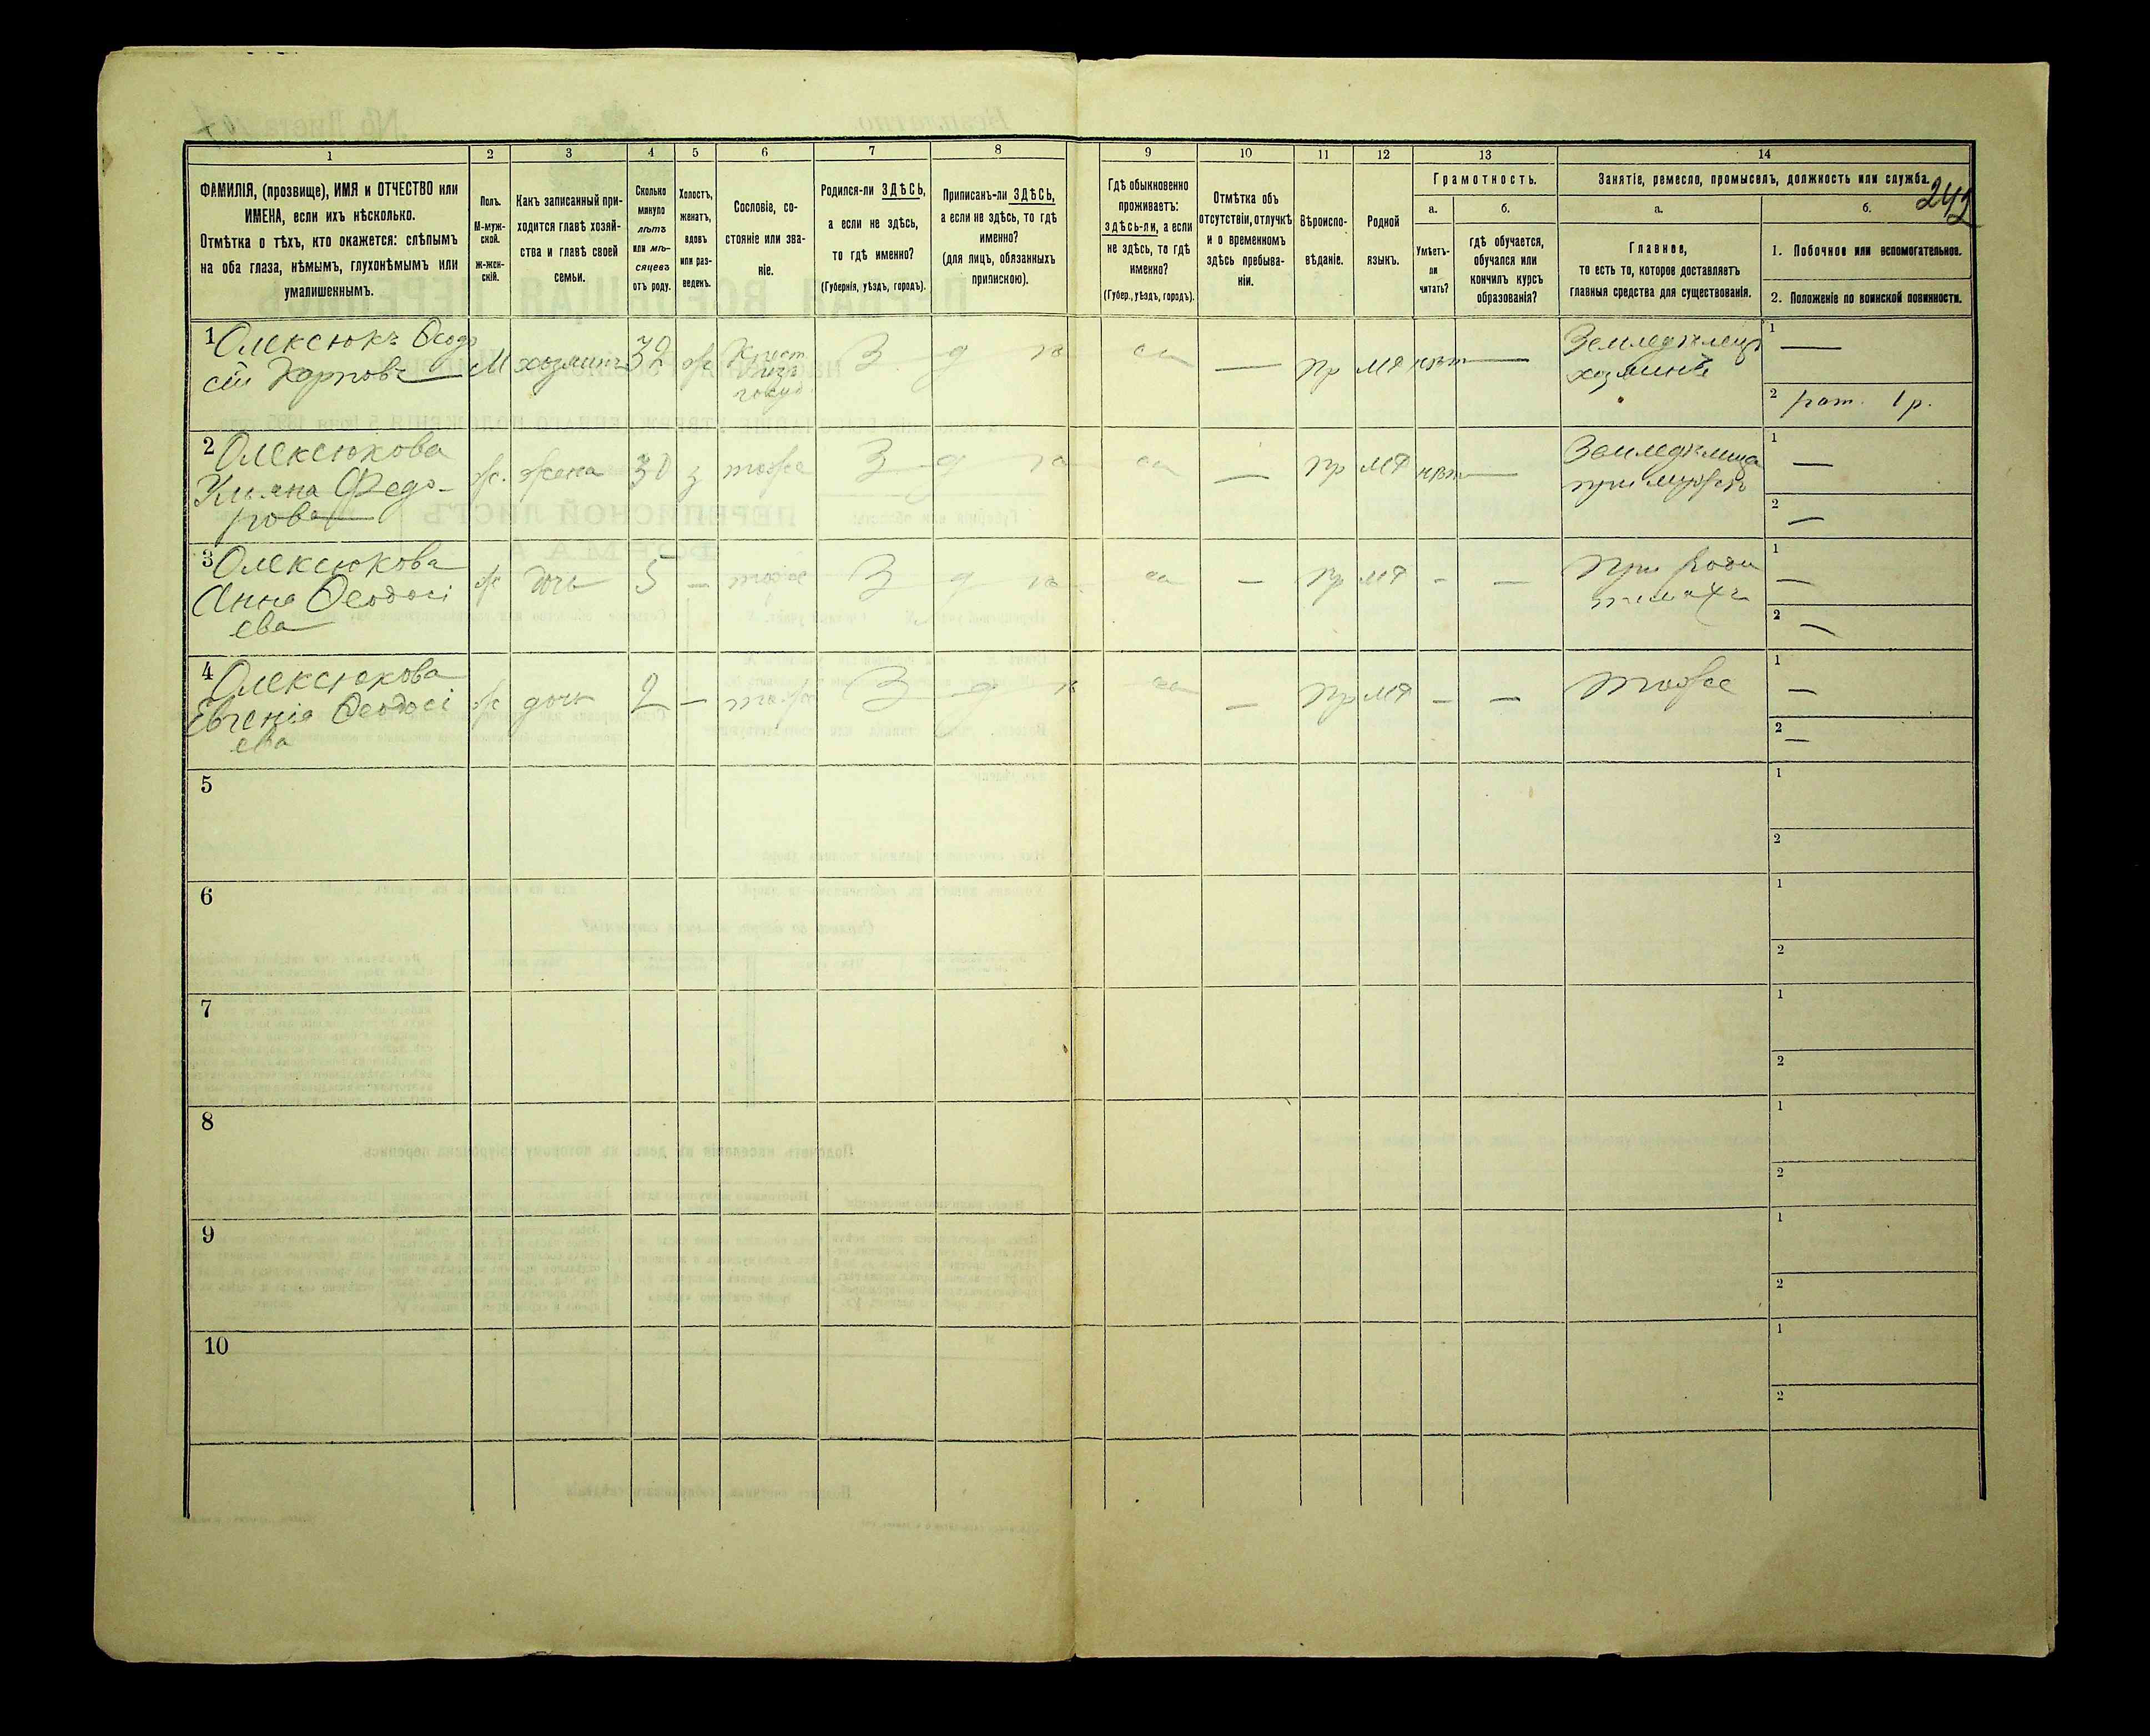 1 2 3 4 5 6 7 8 9 10 11 12 13 14
ФАМИЛІЯ, (прозвище), ИМЯ и ОТЧЕСТВО или
ИМЕНА, если ихъ нѣсколько.
Отмѣтка о тѣхъ, кто окажется: слѣпымъ
на оба глаза, нѣмымъ, глухонѣмымъ или
умалишеннымъ.
Полъ.
М-муж-
ской.
ж-жен-
скій.
Какъ записанный при-
ходится главѣ хозяй-
ства и главѣ своей
семьи.
Сколько
минуло
лѣтъ
или мѣ-
сяцевъ
отъ роду.
Холостъ,
женатъ,
вдовъ
или раз-
веденъ.
Сословіе, со-
стояніе или зва-
ніе.
Родился-ли ЗДѢСЬ,
а если не здѣсь,
то гдѣ именно?
(Губернія, уѣздъ, городъ).
Приписанъ-ли ЗДѢСЬ,
а если не здѣсь, то гдѣ
именно?
(для лицъ, обязанныхъ
припискою).
Гдѣ обыкновенно
проживаетъ:
здѣсь-ли, а если
не здѣсь, то гдѣ
именно?
(Губер., уѣздъ, городъ).
Отмѣтка объ
отсутствіи, отлучкѣ
и о временномъ
здѣсь пребыва-
ніи.
Вѣроиспо-
вѣданіе.
Родной
языкъ.
Грамотность.
а.
Умѣетъ-
ли
читать?
б.
гдѣ обучается,
обучался или
кончилъ курсъ
образованія?
Занятіе, ремесло, промыселъ, должность или служба.
242
а.
Главное,
то есть то, которое доставляетъ
главныя средства для существованія.
б.
1. Побочное или вспомогательное.
2. Положеніе по воинской повинности.
1 Олексюкъ Ѳеодо
сій Карповъ
М хозяинъ 32 ж
Крест
изъ
госуд.
З д ѣ сь — пр мл нѣт —
Земледѣлецъ
хозяинъ
1 —
2 рат. 1 р.
2 Олексюкова
Федо-
рова
ж. жена 30 з тоже З д ѣ сь — пр мл нѣт —
Земледѣлица
при мужѣ
1 —
2 —
3 Олексюкова
Анна Ѳеодосі
ева
ж дочь 5 — тоже З д ѣ сь — пр мл - —
При роди
теляхъ
1 —
2 —
4 Олексюкова
Евгенія Ѳеодосі
ева
ж дочь 2 — тоже З д ѣ сь — пр мл - —
тоже
1 —
2 —
5 1
2
6 1
2
7 1
2
8 1
2
9 1
2
10 1
2